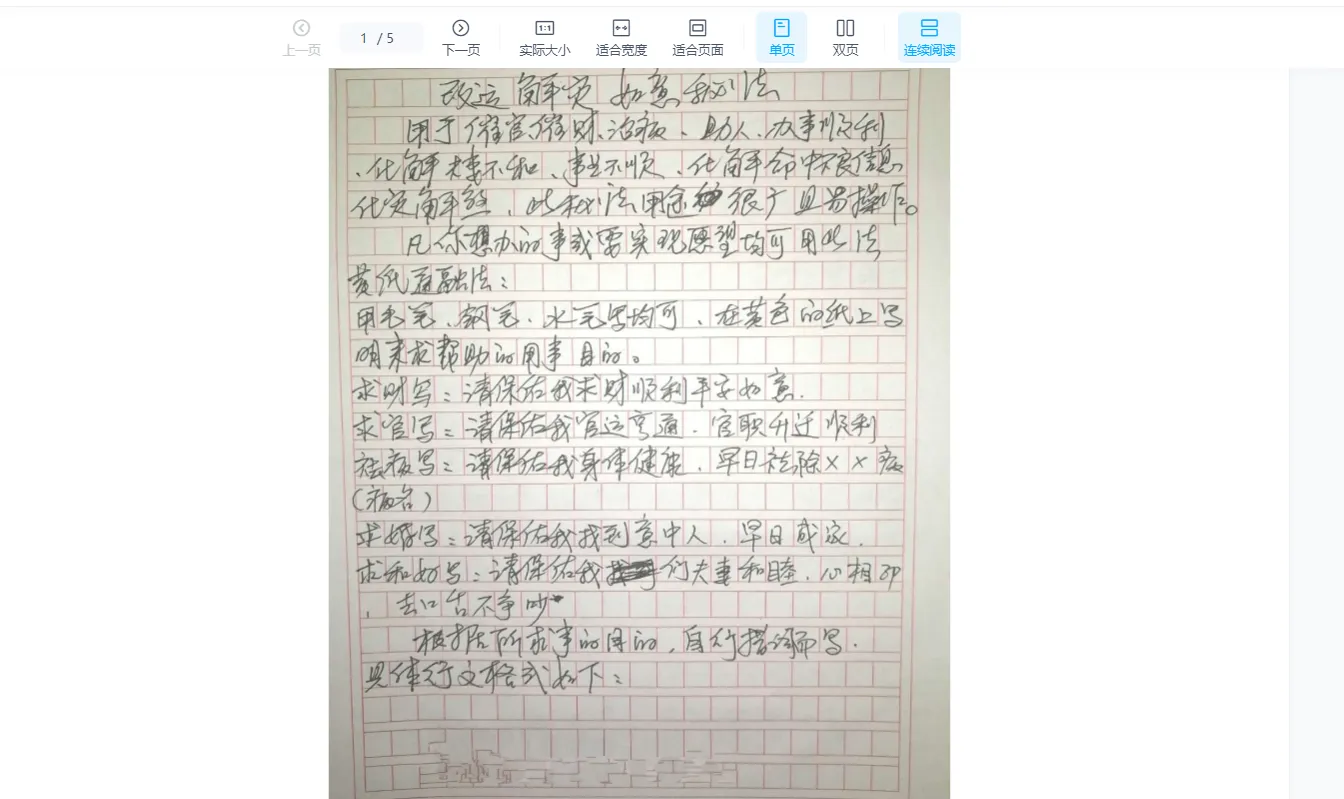 上一页 1 / 5 下一页 1:1 实际大小 适合宽度 适合页面 单页 双页 连续阅读
改运解灾如意秘法
用于催官、催财、治病、助人、办事顺利
、化解夫妻不和、事业不顺、化解命中不良信息
化灾解煞、此秘法用途很广且易操作。
凡你想办的事或要实现愿望均可用此法
黄纸通融法：
用毛笔、钢笔、水毛写均可、在黄色的纸上写
明来求帮助的用事目的。
求财写：请保佑我求财顺利平安如意.
求官写：请保佑我官运亨通.官职升迁顺利
祛病写：请保佑我身体健康、早日祛除××病
（病名）
求婚写：请保佑我找到意中人、早日成家.
求和好写：请保佑我们夫妻和睦、心相印
、去口舌不争吵
根据所求事的目的,自行措词而写.
具体行文格式如下：